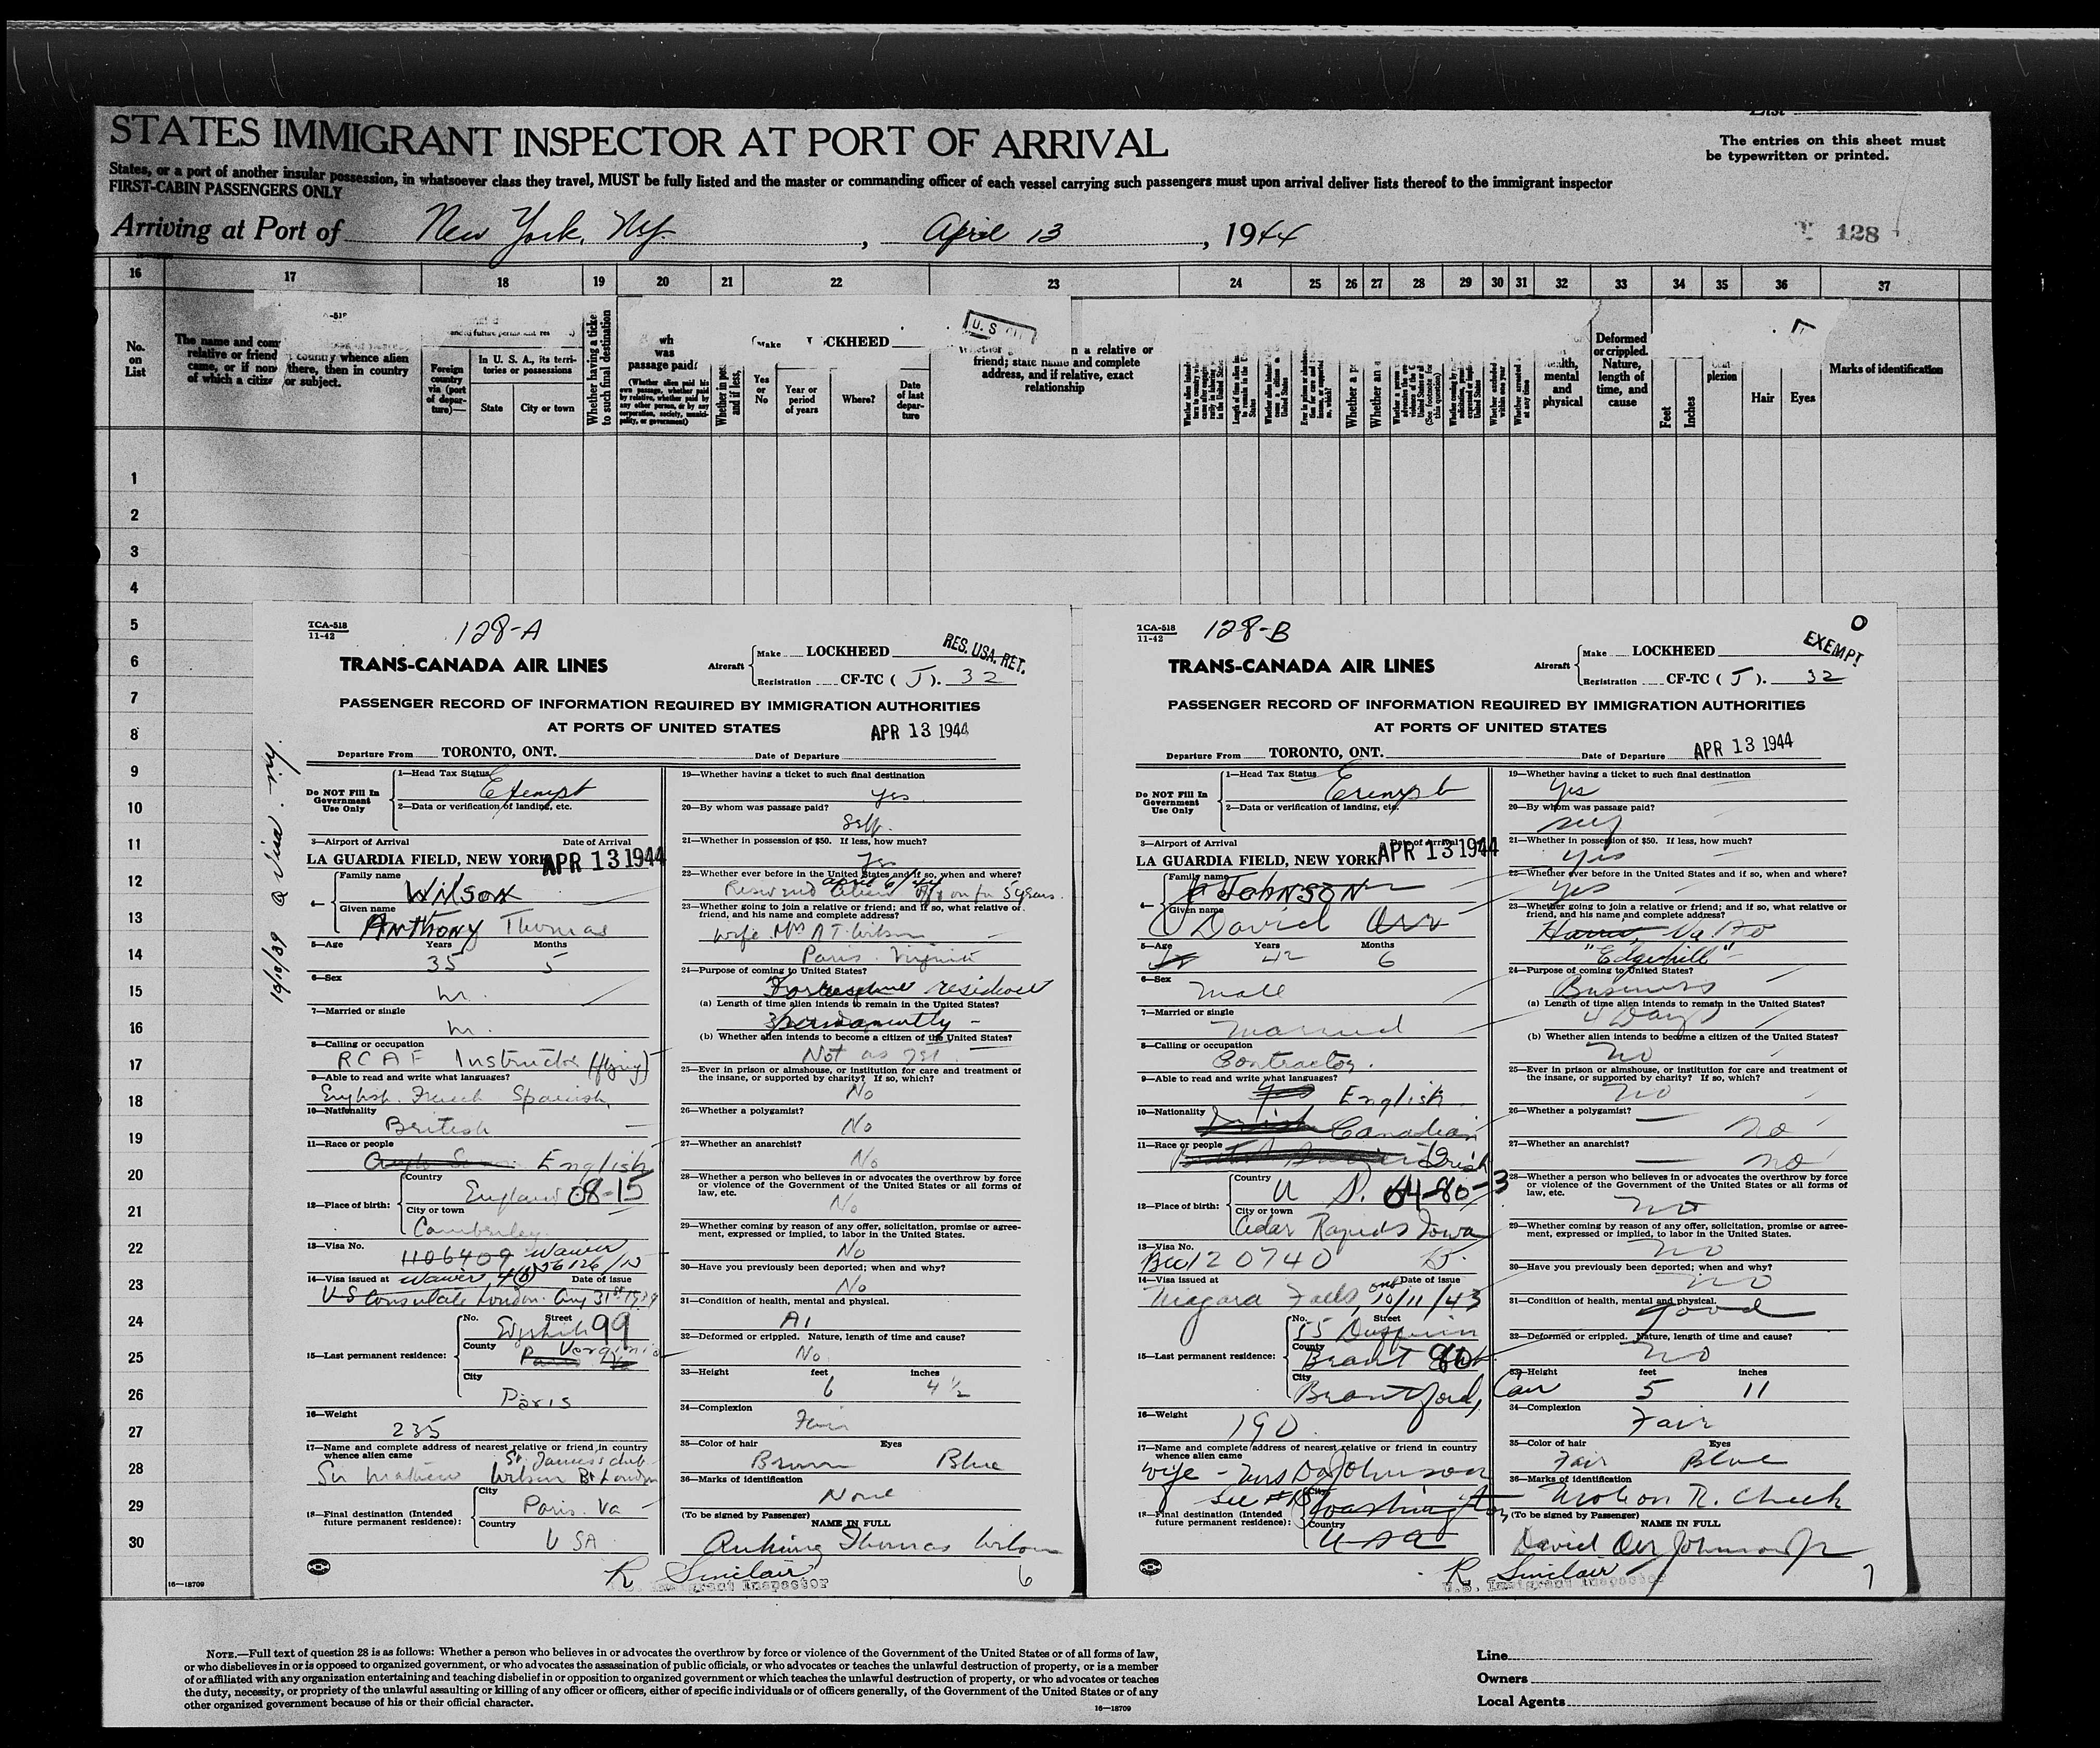 STATES IMMIGRANT INSPECTOR AT PORT OF ARRIVAL
The entries on this sheet must
be typewritten or printed.
States, or a port of another insular possession, in whatsoever class they travel, MUST be fully listed and the master or commanding officer of each vessel carrying such passengers must upon arrival deliver lists thereof to the immigrant inspector
FIRST-CABIN PASSENGERS ONLY
Arriving at Port of New York, Ny. , April 13 , 1944
128
16 17 18 19 20 21 22 23 24 25 26 27 28 29 30 31 32 33 34 35 36 37
No. on List
The name and com
relative or friend country whence alien
came, or if non there, then in country
of which a citize or subject.
Foreign country via (port of departure)—
In U. S. A., its territories or possessions
State City or town
Whether having a ticke to such final destination
wh was passage paid?
(Whether alien paid his own passage, whether paid by relative, whether paid by any other person, or by any corporation, society, municipality, or government)
Whether in pos and if less,
Make CKHEED
Yes or No
Year or period of years
Where?
Date of last departure
U. S.
n a relative or
friend; state name and complete
address, and if relative, exact
relationship
Whether a p
Whether an
mental and physical
Deformed or crippled. Nature, length of time, and cause
Feet Inches
plexion
Hair Eyes
Marks of identification
1
2
3
4
5
6
7
8
9
10
11
12
13
14
15
16
17
18
19
20
21
22
23
24
25
26
27
28
29
30
16—18709
TCA-518
11-42
128-A
RES. USA. RET.
TRANS-CANADA AIR LINES
Aircraft Make LOCKHEED
Registration CF-TC (J). 32
PASSENGER RECORD OF INFORMATION REQUIRED BY IMMIGRATION AUTHORITIES
AT PORTS OF UNITED STATES
APR 13 1944
Departure From TORONTO, ONT. Date of Departure
Do NOT Fill In Government Use Only
1—Head Tax Status Exempt
2—Data or verification of landing, etc.
3—Airport of Arrival Date of Arrival
LA GUARDIA FIELD, NEW YORK APR 13 1944
4— Family name Wilson
Given name Anthony Thomas
5—Age Years Months
35 5
6—Sex
M.
7—Married or single
M.
8—Calling or occupation
RCAF Instructor (flying)
9—Able to read and write what languages?
English. French Spanish,
10—Nationality
British
11—Race or people
English
12—Place of birth: Country England 08-15
City or town Camberley
13—Visa No.
1106409 Waiver
56126/10
14—Visa issued at Waiver Date of issue
US Consulate London. Aug 31st 1939
15—Last permanent residence: No. Street 99
County Virginia
City Paris
16—Weight
235
17—Name and complete address of nearest relative or friend in country
whence alien came St. James's club
Sir Mathew Wilson Bt London
18—Final destination (Intended future permanent residence): City Paris. Va
Country USA
19—Whether having a ticket to such final destination
yes
20—By whom was passage paid?
Self.
21—Whether in possession of $50. If less, how much?
Yes
22—Whether ever before in the United States and if so, when and where?
off on for 5 years.
23—Whether going to join a relative or friend; and if so, what relative or
friend, and his name and complete address?
Wife Mrs A T. Wilson
Paris. Virginia
24—Purpose of coming to United States?
residence
(a) Length of time alien intends to remain in the United States?
permanently
(b) Whether alien intends to become a citizen of the United States?
Not as yet
25—Ever in prison or almshouse, or institution for care and treatment of
the insane, or supported by charity? If so, which?
No
26—Whether a polygamist?
No
27—Whether an anarchist?
No
28—Whether a person who believes in or advocates the overthrow by force
or violence of the Government of the United States or all forms of
law, etc.
No
29—Whether coming by reason of any offer, solicitation, promise or agreement, expressed or implied, to labor in the United States.
No
30—Have you previously been deported; when and why?
No
31—Condition of health, mental and physical.
A1
32—Deformed or crippled. Nature, length of time and cause?
No
33—Height feet inches
6 4½
34—Complexion
Fair
35—Color of hair Eyes
Brown Blue
36—Marks of identification
None
(To be signed by Passenger)
NAME IN FULL
Anthony Thomas Wilson
R Sinclair
U.S. Immigrant Inspector
6
TCA-518
11-42
128-B
0
EXEMPT
TRANS-CANADA AIR LINES
Aircraft Make LOCKHEED
Registration CF-TC (J). 32
PASSENGER RECORD OF INFORMATION REQUIRED BY IMMIGRATION AUTHORITIES
AT PORTS OF UNITED STATES
Departure From TORONTO, ONT. Date of Departure APR 13 1944
Do NOT Fill In Government Use Only
1—Head Tax Status Exempt
2—Data or verification of landing, etc.
3—Airport of Arrival Date of Arrival
LA GUARDIA FIELD, NEW YORK APR 13 1944
Family name JOHNSON
Given name David Orr
5—Age Years Months
42 6
6—Sex
Male
7—Married or single
Married
8—Calling or occupation
Contractor.
9—Able to read and write what languages?
English
10—Nationality
Canadian
11—Race or people
Irish
12—Place of birth: Country U S. 64-80-3
City or town Cedar Rapids Iowa
13—Visa No.
120740
14—Visa issued at Date of issue
Niagara Falls, Ont 10/11/43
15—Last permanent residence: No. Street
County Brant
City Brantford, Can
16—Weight
190
17—Name and complete address of nearest relative or friend in country
whence alien came
Wife - Mrs Johnson
See #15
18—Final destination (Intended future permanent residence): City Washington
Country USA
19—Whether having a ticket to such final destination
Yes
20—By whom was passage paid?
self
21—Whether in possession of $50. If less, how much?
Yes
22—Whether ever before in the United States and if so, when and where?
Yes
23—Whether going to join a relative or friend; and if so, what relative or
friend, and his name and complete address?
"Edgehill"
24—Purpose of coming to United States?
Business
(a) Length of time alien intends to remain in the United States?
Days
(b) Whether alien intends to become a citizen of the United States?
no
25—Ever in prison or almshouse, or institution for care and treatment of
the insane, or supported by charity? If so, which?
no
26—Whether a polygamist?
no
27—Whether an anarchist?
no
28—Whether a person who believes in or advocates the overthrow by force
or violence of the Government of the United States or all forms of
law, etc.
no
29—Whether coming by reason of any offer, solicitation, promise or agreement, expressed or implied, to labor in the United States.
no
30—Have you previously been deported; when and why?
no
31—Condition of health, mental and physical.
good
32—Deformed or crippled. Nature, length of time and cause?
no
33—Height feet inches
5 11
34—Complexion
Fair
35—Color of hair Eyes
Fair Blue
36—Marks of identification
Mole on R. Cheek
(To be signed by Passenger)
NAME IN FULL
David Orr Johnson Jr
R Sinclair
U.S. Immigrant Inspector
7
19/10/39 Q Visa. ny.
NOTE.—Full text of question 28 is as follows: Whether a person who believes in or advocates the overthrow by force or violence of the Government of the United States or of all forms of law,
or who disbelieves in or is opposed to organized government, or who advocates the assassination of public officials, or who advocates or teaches the unlawful destruction of property, or is a member
of or affiliated with any organization entertaining and teaching disbelief in or opposition to organized government or which teaches the unlawful destruction of property, or who advocates or teaches
the duty, necessity, or propriety of the unlawful assaulting or killing of any officer or officers, either of specific individuals or of officers generally, of the Government of the United States or of any
other organized government because of his or their official character.
16—18709
Line
Owners
Local Agents